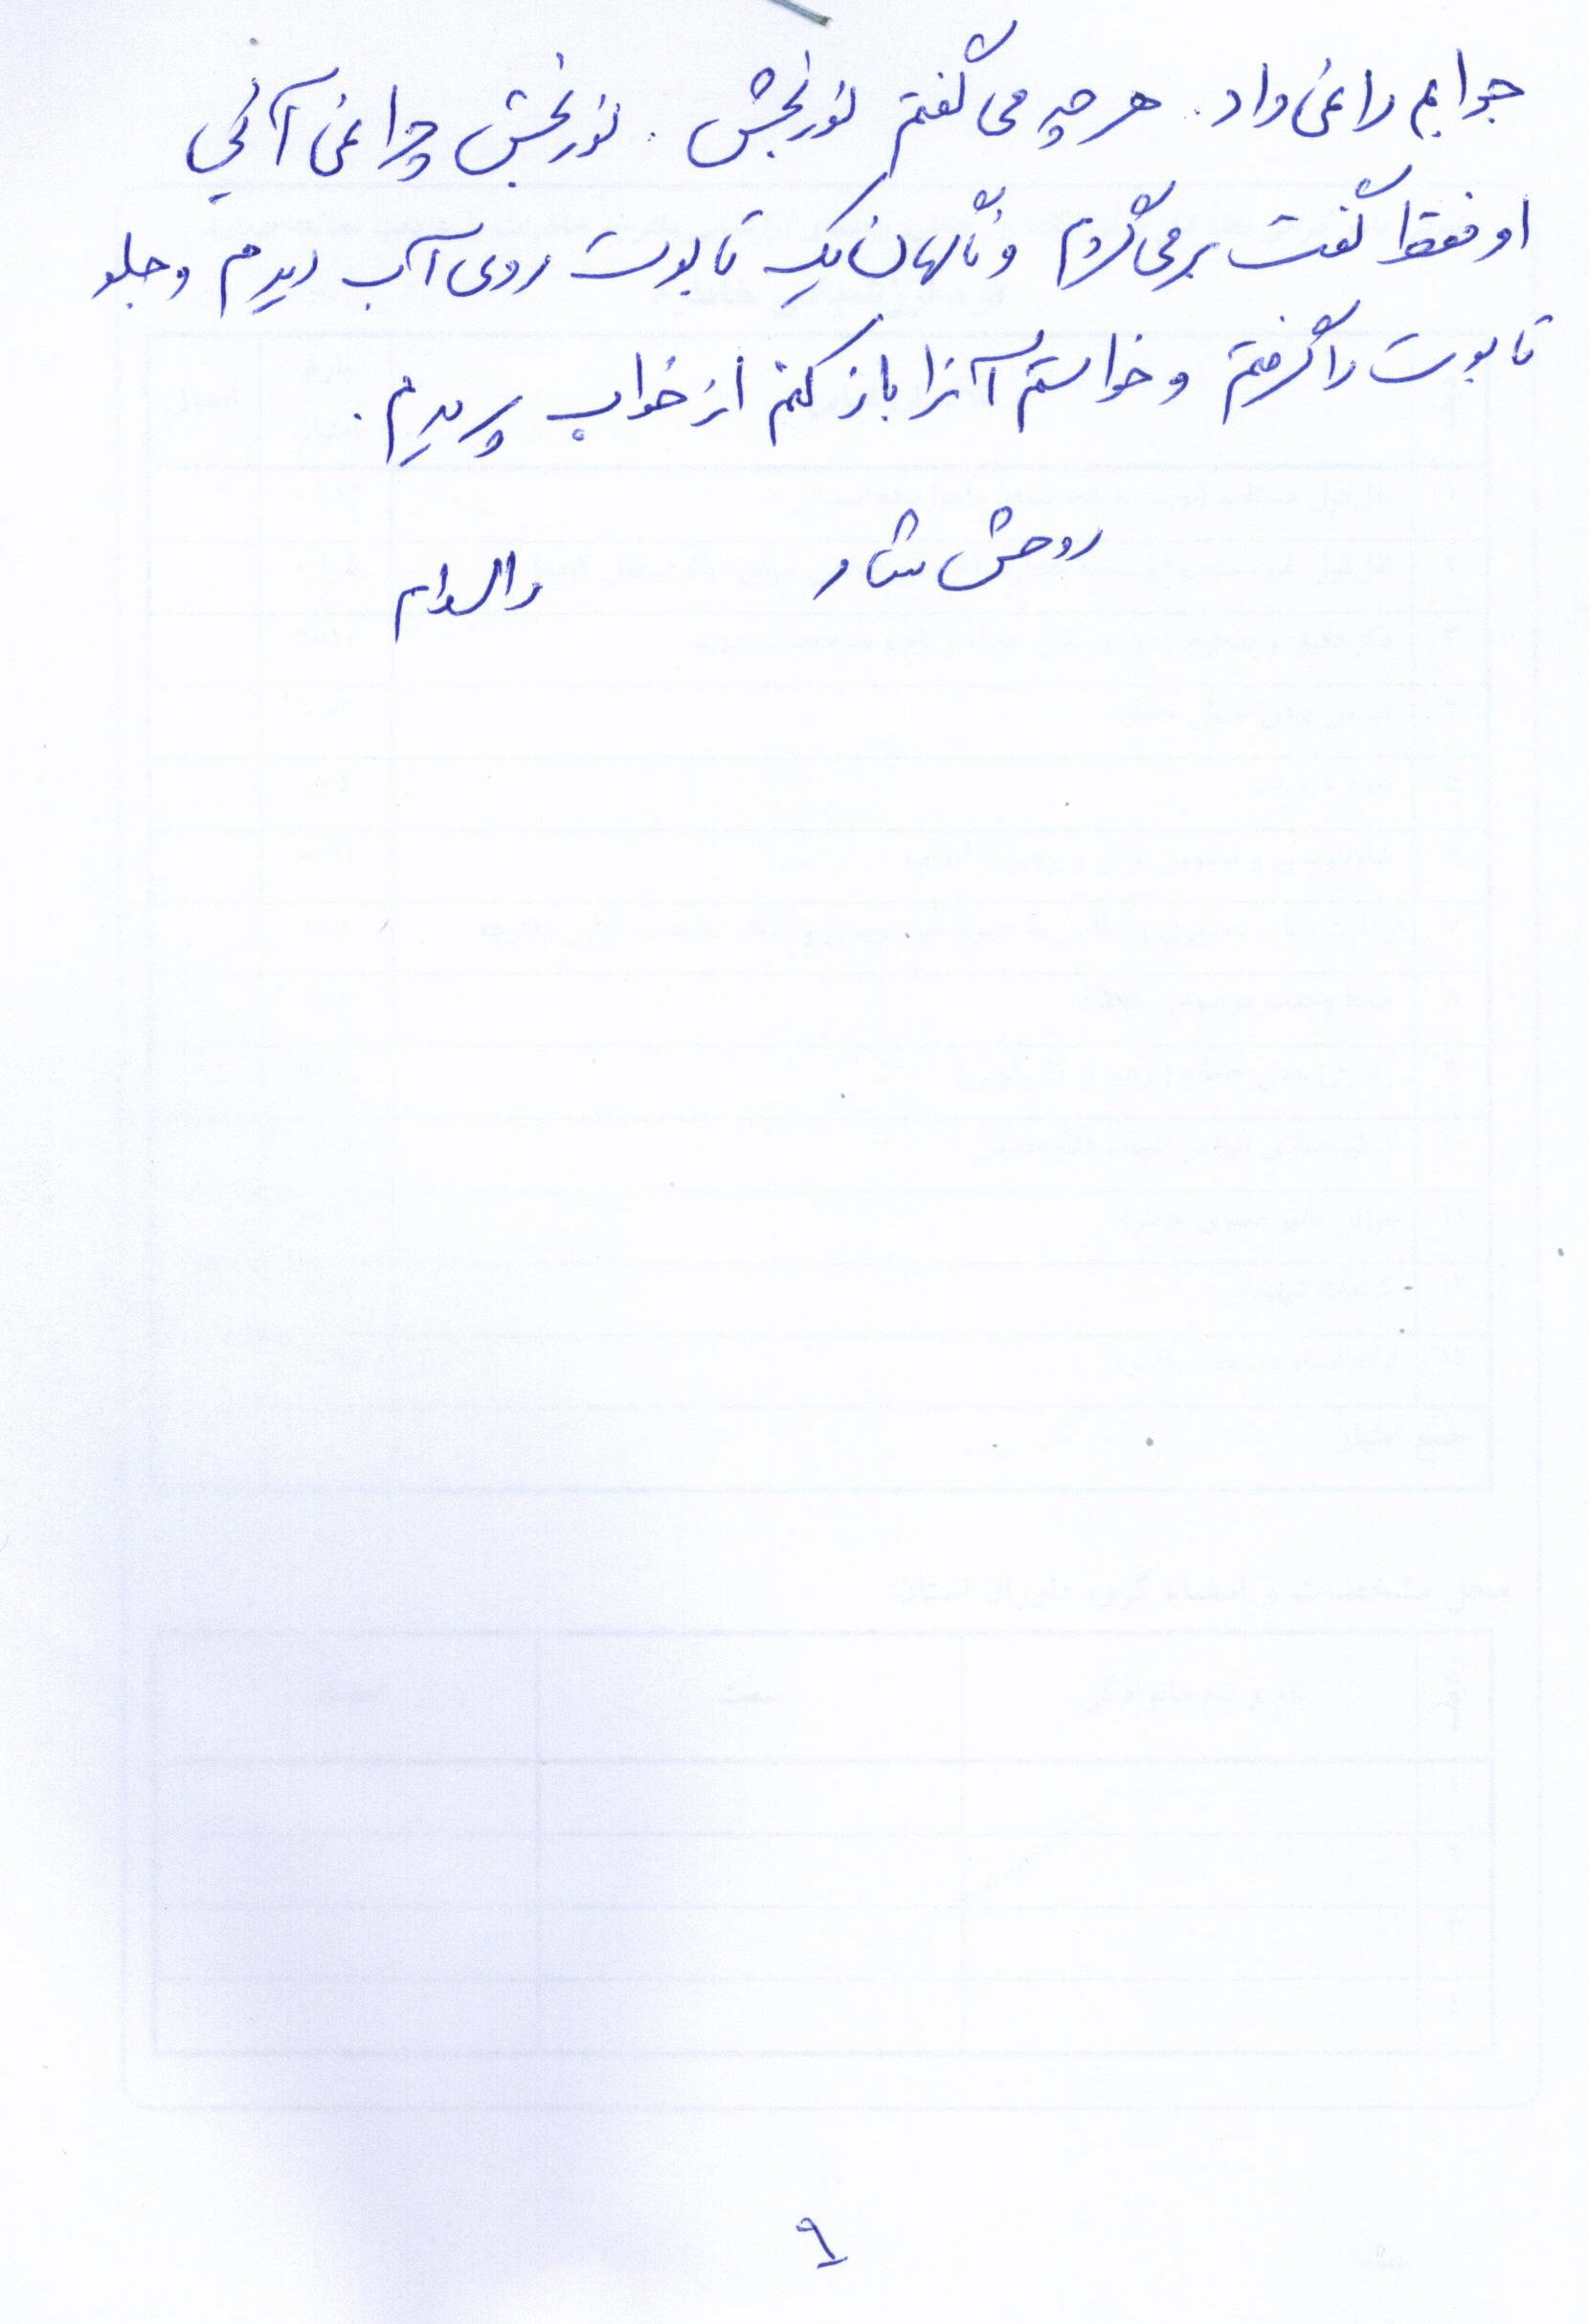 جوابم را نمی داد. هر چه می گفتم نوربخش. نوربخش چرا نمی آئی
او فقط گفت برمی گردم و ناگهان یک تابوت روی آب دیدم و جلو
تابوت را گرفتم و خواستم آنرا باز کنم از خواب پریدم.
روحش شاد والسلام
۹